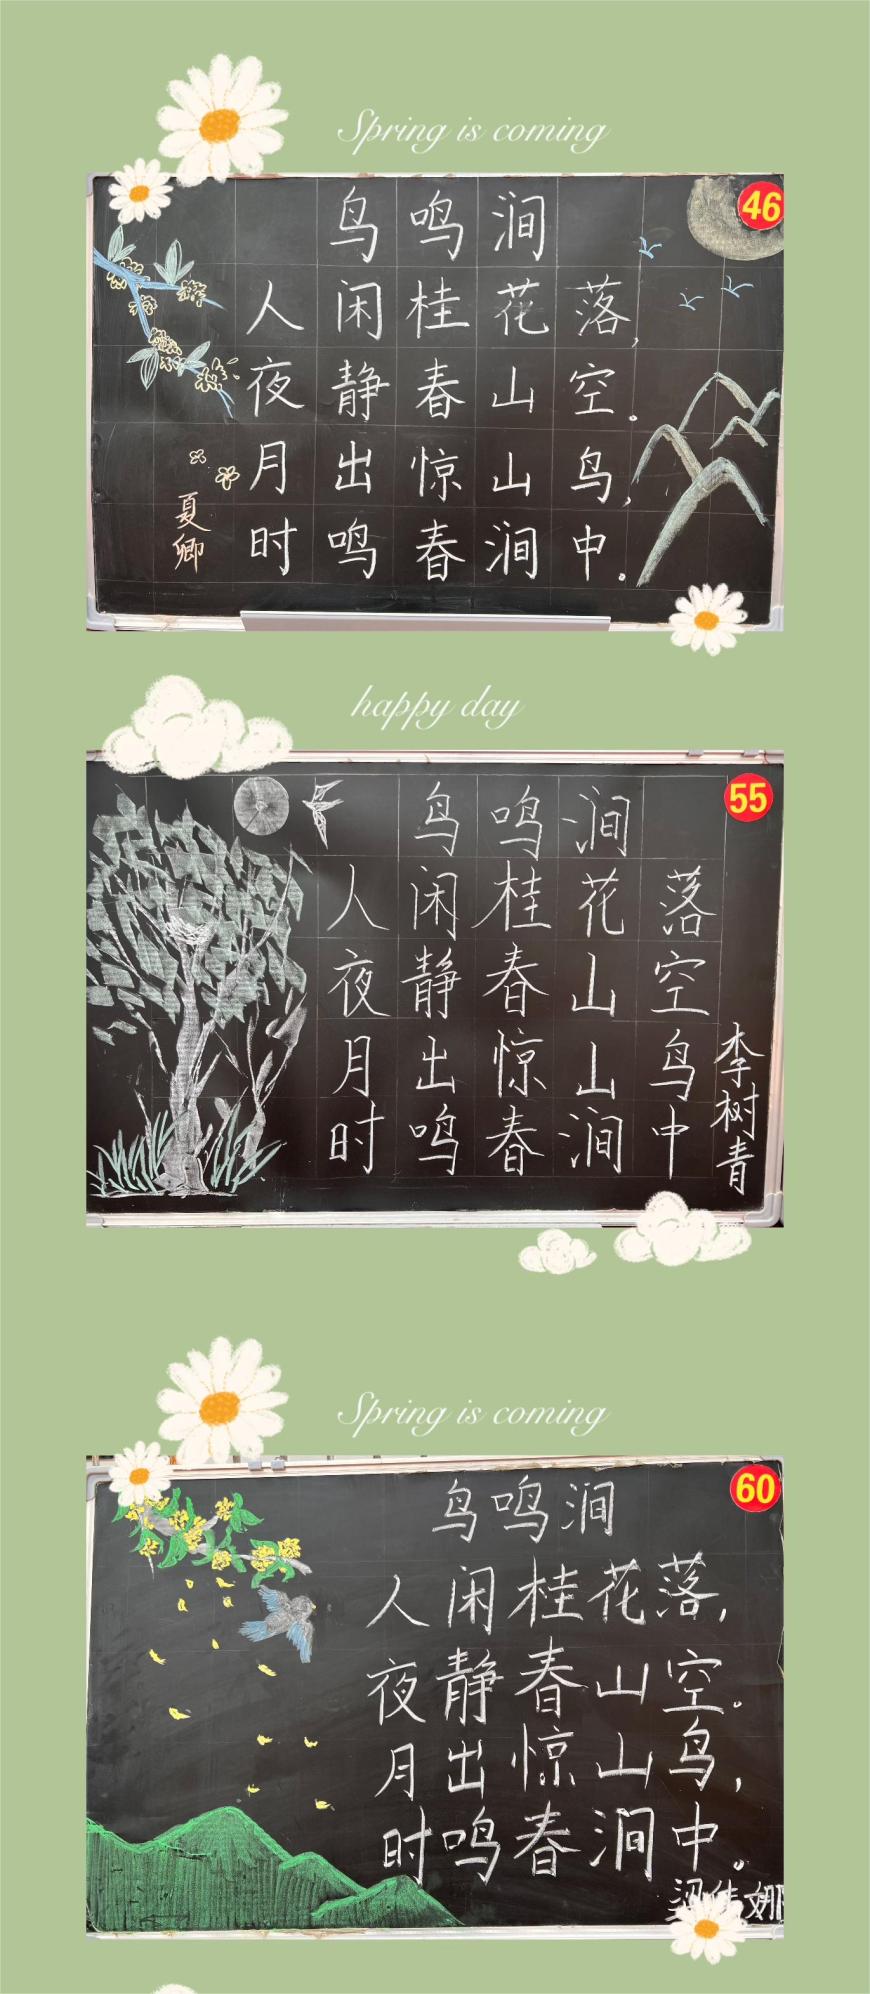 Spring is coming
46
鸟鸣涧
人闲桂花落,
夜静春山空。
月出惊山鸟,
时鸣春涧中。
夏卿
happy day
55
鸟鸣涧
人闲桂花落
夜静春山空
月出惊山鸟
时鸣春涧中
李树青
Spring is coming
60
鸟鸣涧
人闲桂花落,
夜静春山空。
月出惊山鸟,
时鸣春涧中。
梁 娜